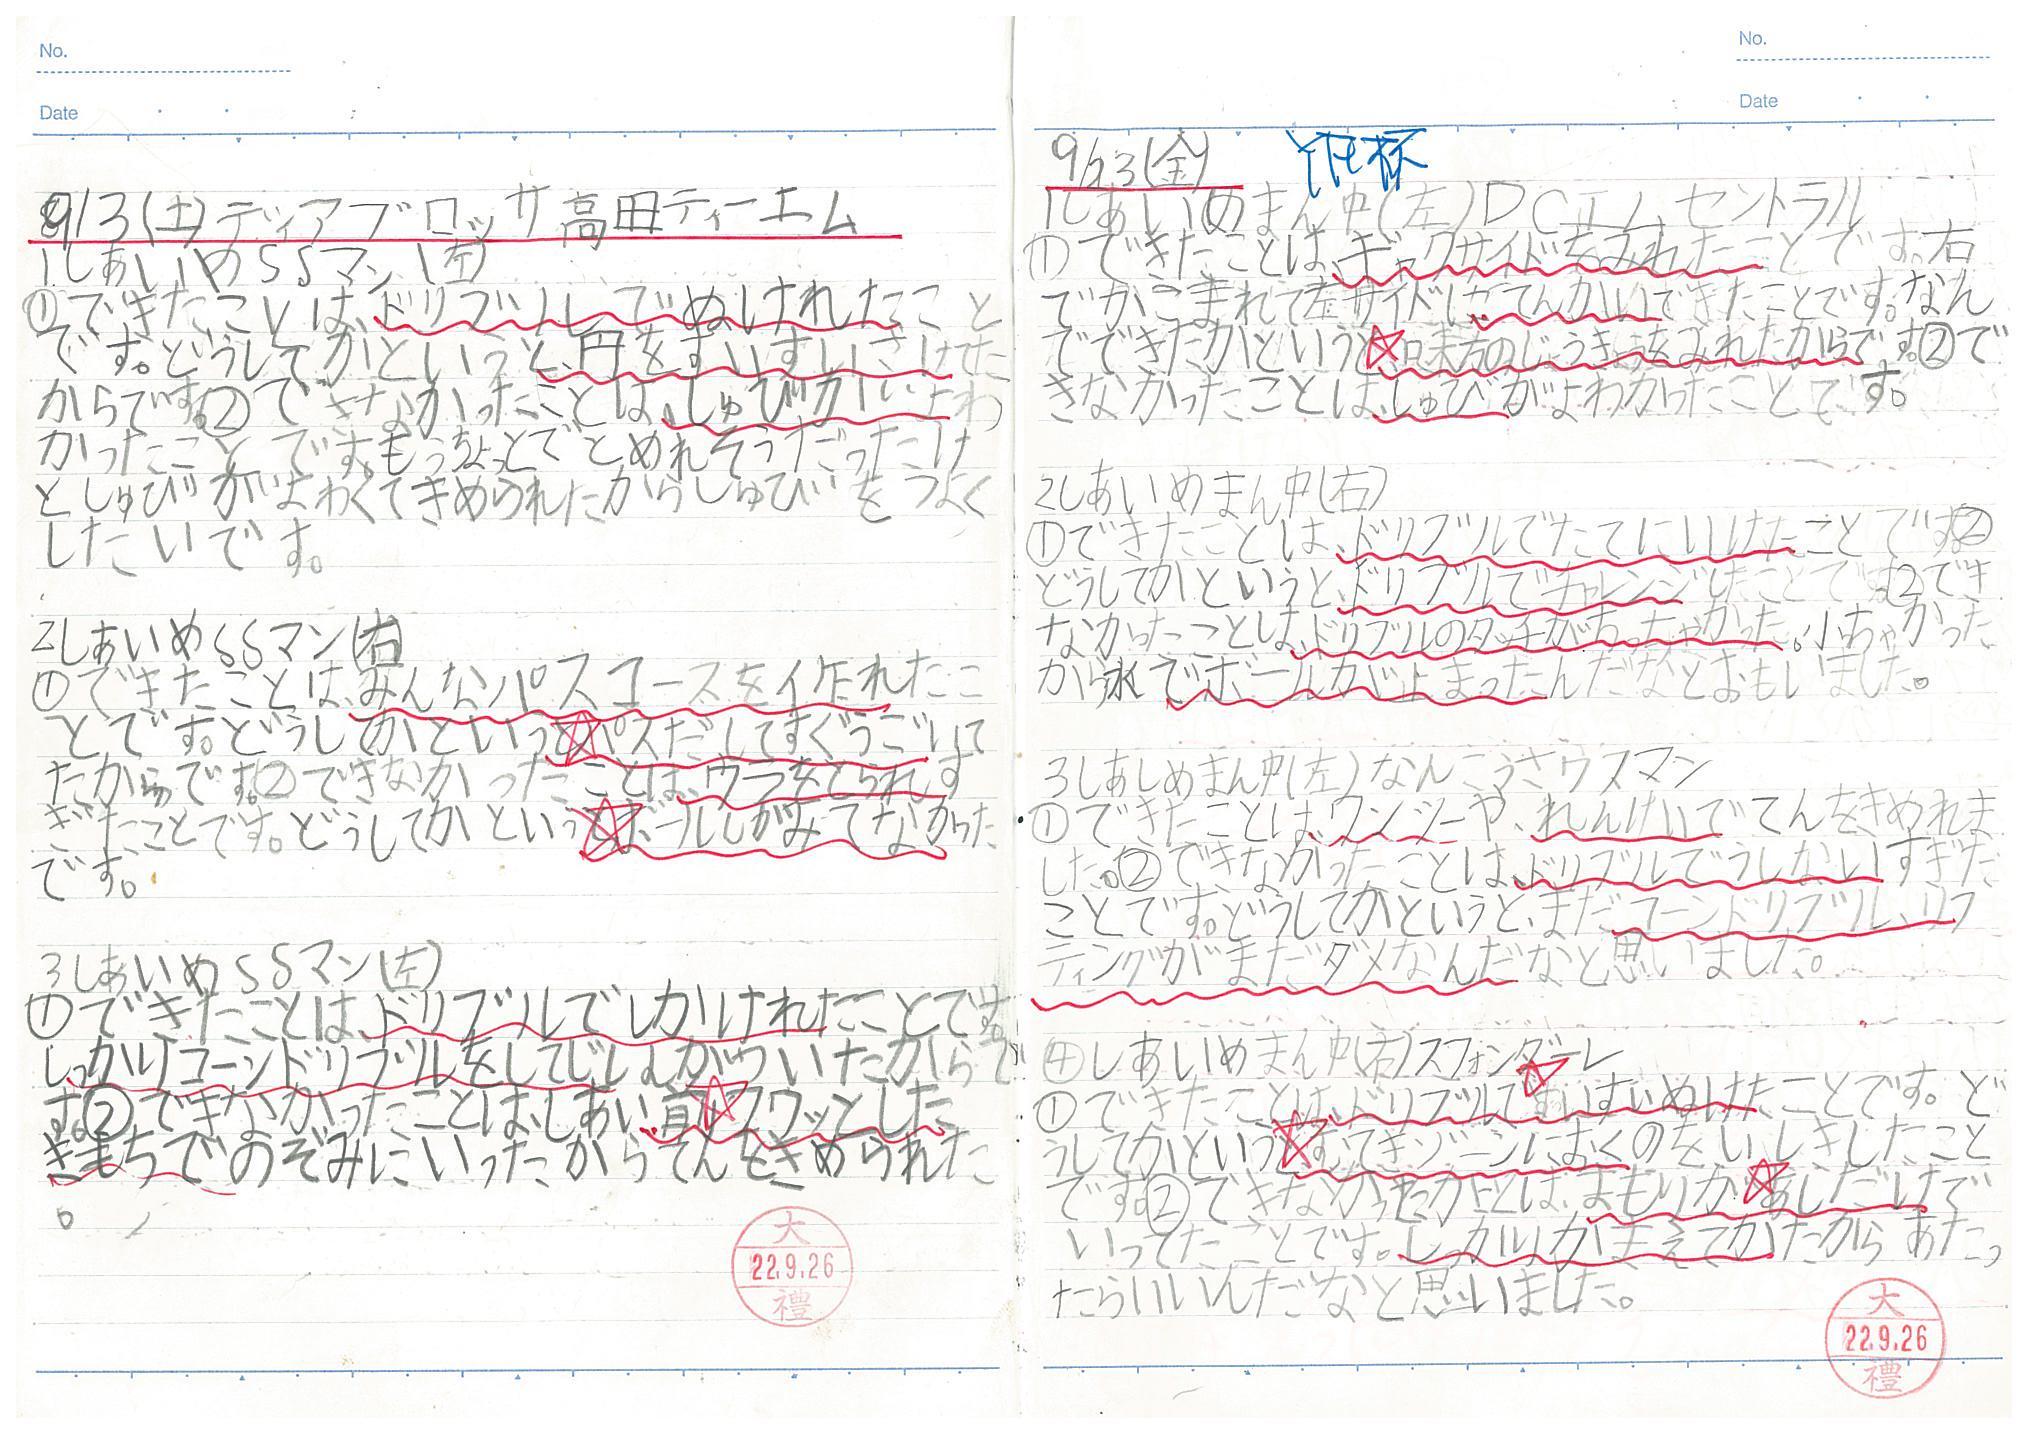 No.
Date
9/3(土)ディアブロッサ高田ティーエム
1しあいめSSマン(左)
①できたことは、ドリブルしてぬけれたこと
です。どうしてかというと、円をすいすいさけせた
からです。②できなかったことは、しゅびがよわ
かったことです。もうちょっとでとめれそうだったけ
どしゅびがよわくてきめられたからしゅびをつよく
したいです。
2しあいめSSマン(右)
①できたことは、みんなパスコースを作れたこ
とです。どうしてかというとパスだしてすぐうごいて
たからです。②できなかったことは、ウラをとられす
ぎたことです。どうしてかというとボールしかみてなかった
です。
3しあいめSSマン(左)
①できたことは、ドリブルでしかけれたことです。
しっかりコーンドリブルをしてじしんがついたからで
す。②できなかったことは、しあい前にフワッとした
きもちでのぞみにいったからてんをきめられた
。
大
22.9.26
禮
No.
Date
9/23(金) 杯
1しあいめまん中(左)DCエノセントラル
①できたことは、ギャクサイドをみれたことです。右
でかこまれて左サイドにてんかいできたことです。なん
でできたかというと味方のじょうきょうをみれたからです。②で
きなかったことは、しゅびがよわかったことです。
2しあいめまん中(右)
①できたことは、ドリブルでたてにいけたことです。②
どうしてかというと、ドリブルでチャレンジしたことです。②でき
なかったことは、ドリブルのタッチがちっちゃかった。小ちゃかった
から水でボールが止まったんだなとおもいました。
3しあしめまん中(左)なんこうさウスマン
①できたことは、ワンツーや、れんけいでてんをきめれま
した。②できなかったことは、ドリブルでうしないすぎた
ことです。どうしてかというと、まだコーンドリブル、リフ
ティングがまだダメなんだなと思いました。
④しあいめまん中(右)スフォンダーレ
①できたことは、ドリブルですいすいぬけたことです。ど
うしてかというと、すいてきゾーンにはくのをいしきしたこと
です。②できなかったことは、まもりがあしだけで
いってたことです。しっかりかまえてかたからあたっ
たらいいんだなと思いました。
大
22.9.26
禮